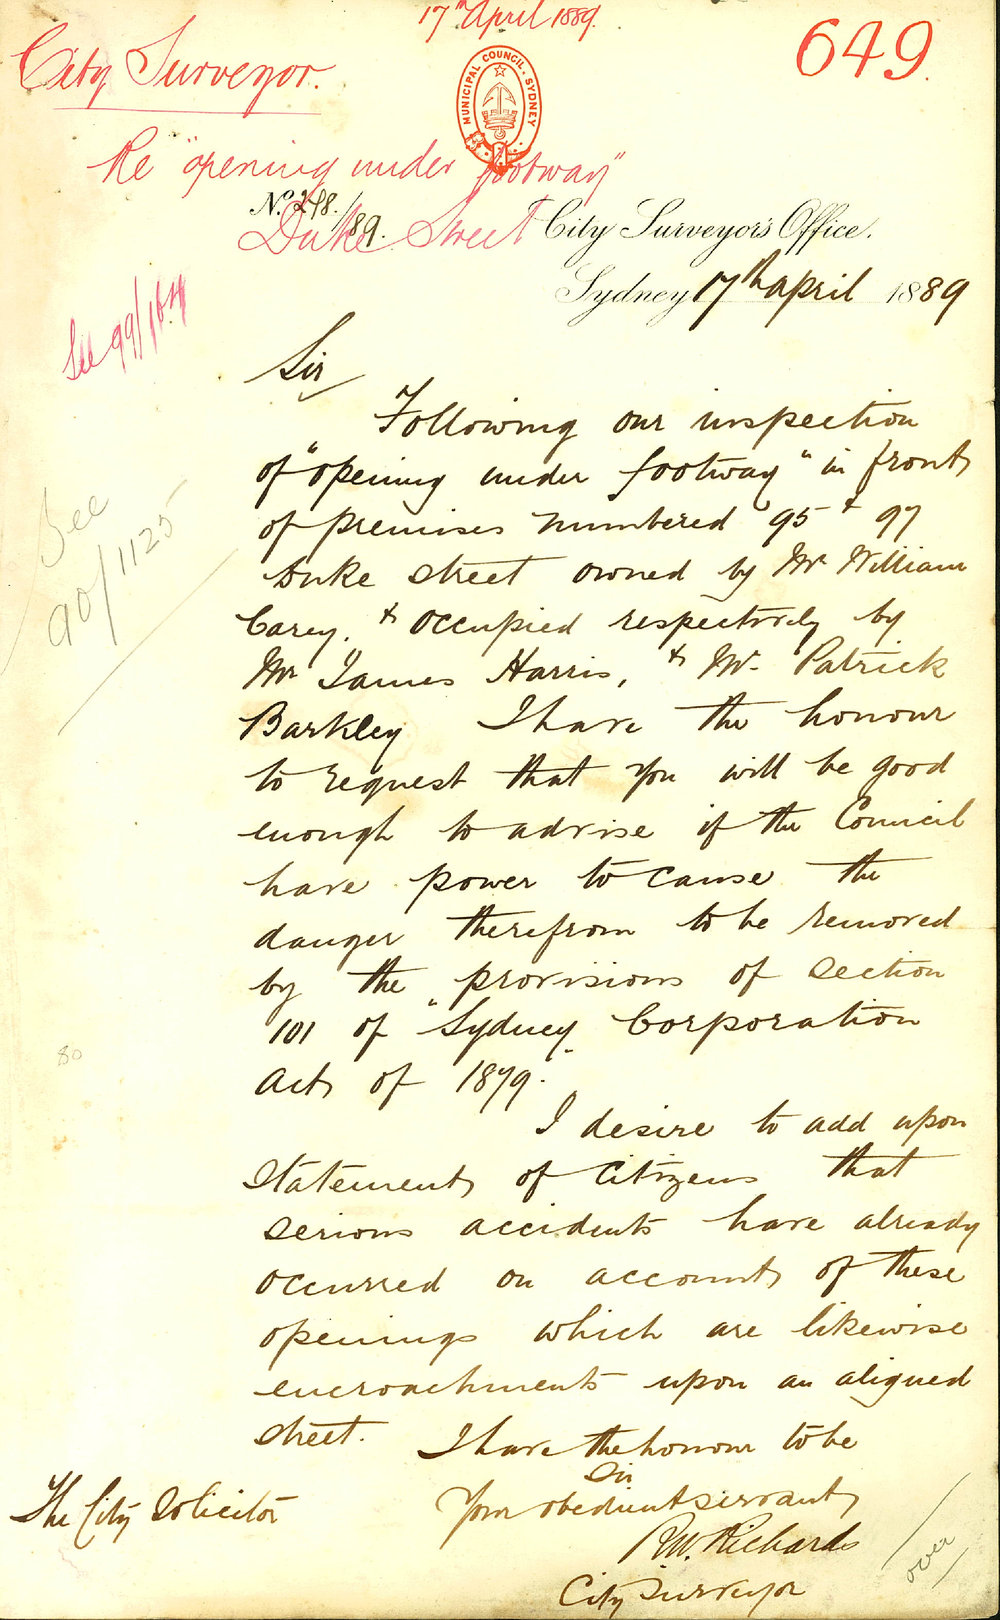 17th April 1889.
649.
City Surveyor.
MUNICIPAL COUNCIL. SYDNEY
Re "opening under footway"
Duke Street
No. 248/89.
City Surveyor's Office.
Sydney 17th april 1889
See 99/
See
90/1125
Sir
Following our inspection
of "opening under footway" in front
of premises numbered 95 & 97
Duke street owned by Mr William
Carey, & occupied respectively by
Mr James Harris, & Mr. Patrick
Barkley I have the honour
to request that you will be good
enough to advise if the Council
have power to cause the
danger therefrom to be removed
by the provisions of section
101 of "Sydney Corporation
Act of 1879".
80
I desire to add upon
statement of citizens that
serious accidents have already
occurred on account of these
openings which are likewise
encroachments upon an aligned
street.
I have the honour to be
Sir
Your obedient servant
R.W. Richards
City Surveyor
The City Solicitor
over